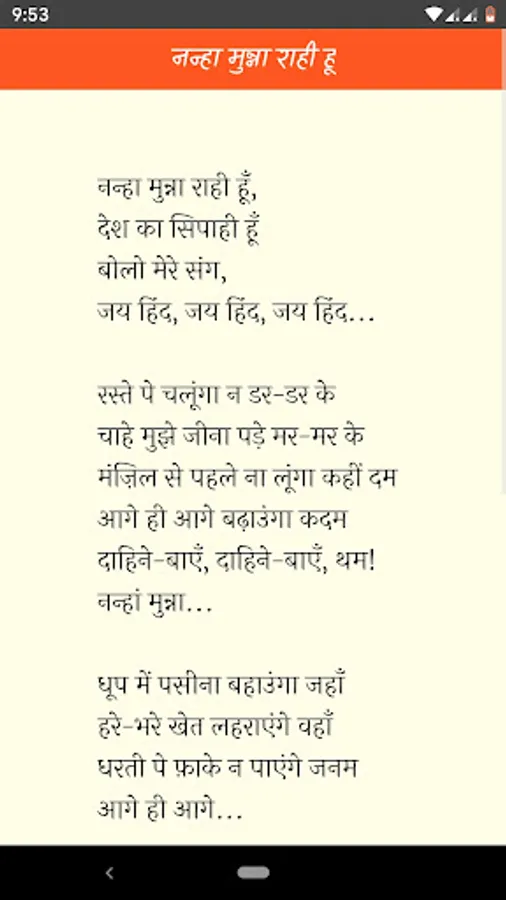 9:53
नन्हा मुन्ना राही हू
नन्हा मुन्ना राही हूँ,
देश का सिपाही हूँ
बोलो मेरे संग,
जय हिंद, जय हिंद, जय हिंद...
रस्ते पे चलूंगा न डर-डर के
चाहे मुझे जीना पड़े मर-मर के
मंज़िल से पहले ना लूंगा कहीं दम
आगे ही आगे बढ़ाउंगा कदम
दाहिने-बाएँ, दाहिने-बाएँ, थम!
नन्हां मुन्ना...
धूप में पसीना बहाउंगा जहाँ
हरे-भरे खेत लहराएंगे वहाँ
धरती पे फ़ाके न पाएंगे जनम
आगे ही आगे...